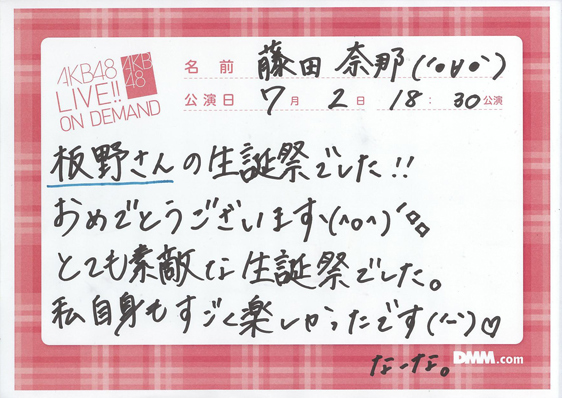 AKB48
LIVE!!
ON DEMAND
AKB
48
名前 藤田 奈那(´•∀•`)
公演日 7月 2日 18:30公演
板野さんの生誕祭でした!!
おめでとうございますヽ(^o^)´ロロ
とても素敵な生誕祭でした。
私自身もすごく楽しかったです(^-^)♡
なーな。
DMM.com